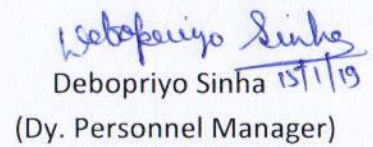 Debopriyo Sinha
Debopriyo Sinha 15/1/19
(Dy. Personnel Manager)